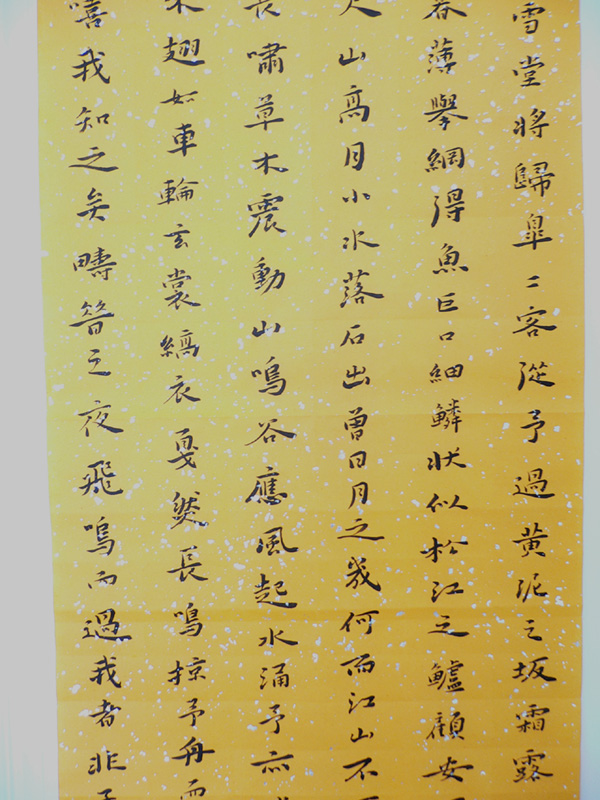 雪堂將歸皐二客從予過黃泥之坂霜露
薄舉網得魚巨口細鱗狀似松江之鱸顧安
尺山高月小水落石出曾日月之幾何而江山不
長嘯草木震動山鳴谷應風起水涌予亦
翅如車輪玄裳縞衣戛然長鳴掠予舟而
嘻我知之矣疇昔之夜飛鳴而過我者非